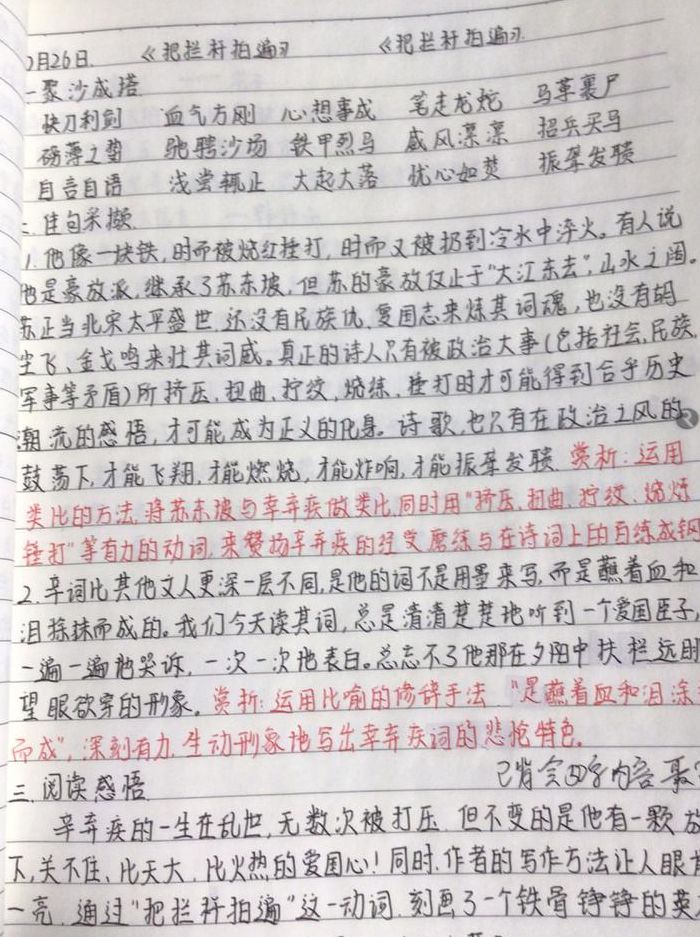 月26日. 《把栏杆拍遍》 《把栏杆拍遍》
一聚沙成塔
快刀利剑 血气方刚 心想事成 笔走龙蛇 马革裹尸
磅薄之势 驰骋沙场 铁甲烈马 威风凛凛 招兵买马
自言自语 浅尝辄止 大起大落 忧心如焚 振聋发聩
二.佳句采撷
1.他像一块铁,时而被烧红捶打,时而又被扔到冷水中淬火。有人说
他是豪放派,继承了苏东坡,但苏的豪放仅止于"大江东去",山水之阔。
苏正当北宋太平盛世,还没有民族仇、爱国志来炼其词魂,也没有胡
尘飞、金戈鸣来壮其词威。真正的诗人只有被政治大事(包括社会、民族、
军事等矛盾)所挤压、扭曲、拧绞、烧炼、捶打时才可能得到合乎历史
潮流的感悟,才可能成为正义的化身。诗歌,也只有在政治之风的
鼓荡下,才能飞翔,才能燃烧,才能炸响,才能振聋发聩. 赏析:运用
类比的方法,将苏东坡与辛弃疾做类比,同时用"挤压、扭曲、拧绞、烧炼
锤打"等有力的动词,来赞扬辛弃疾的经受磨练与在诗词上的百练成钢
2.辛词比其他文人更深一层不同,是他的词不是用墨来写,而是蘸着血和
泪涂抹而成的。我们今天读其词,总是清清楚楚地听到一个爱国臣子,
一遍一遍地哭诉,一次一次地表白。总忘不了他那在夕阳中扶栏远眺
望眼欲穿的形象。赏析:运用比喻的修辞手法."是蘸着血和泪涂
而成",深刻有力,生动形象地写出辛弃疾词的悲怆特色.
已背会 内容
三.阅读感悟
辛弃疾的一生在乱世,无数次被打压.但不变的是他有一颗放
下,关不住、比天大、比火热的爱国心!同时,作者的写作方法让人眼
一亮.通过"把栏杆拍遍"这一动词.刻画了一个铁骨铮铮的英